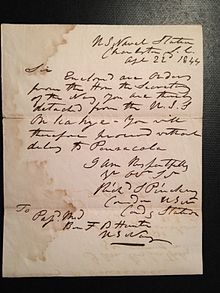 U.S. Naval Station
Charleston S.C.
Apl 22d 1844
Sir
Enclosed are Orders
from the Hon the Secretary
of the Navy. You are
detached from the U.S.S.
You will
therefore proceed without
delay to Pensacola
I am Respectfully
Yr Obt St
Pinckney
Comdr USN
Comdg Station
To Pass Mid
F B
US Navy